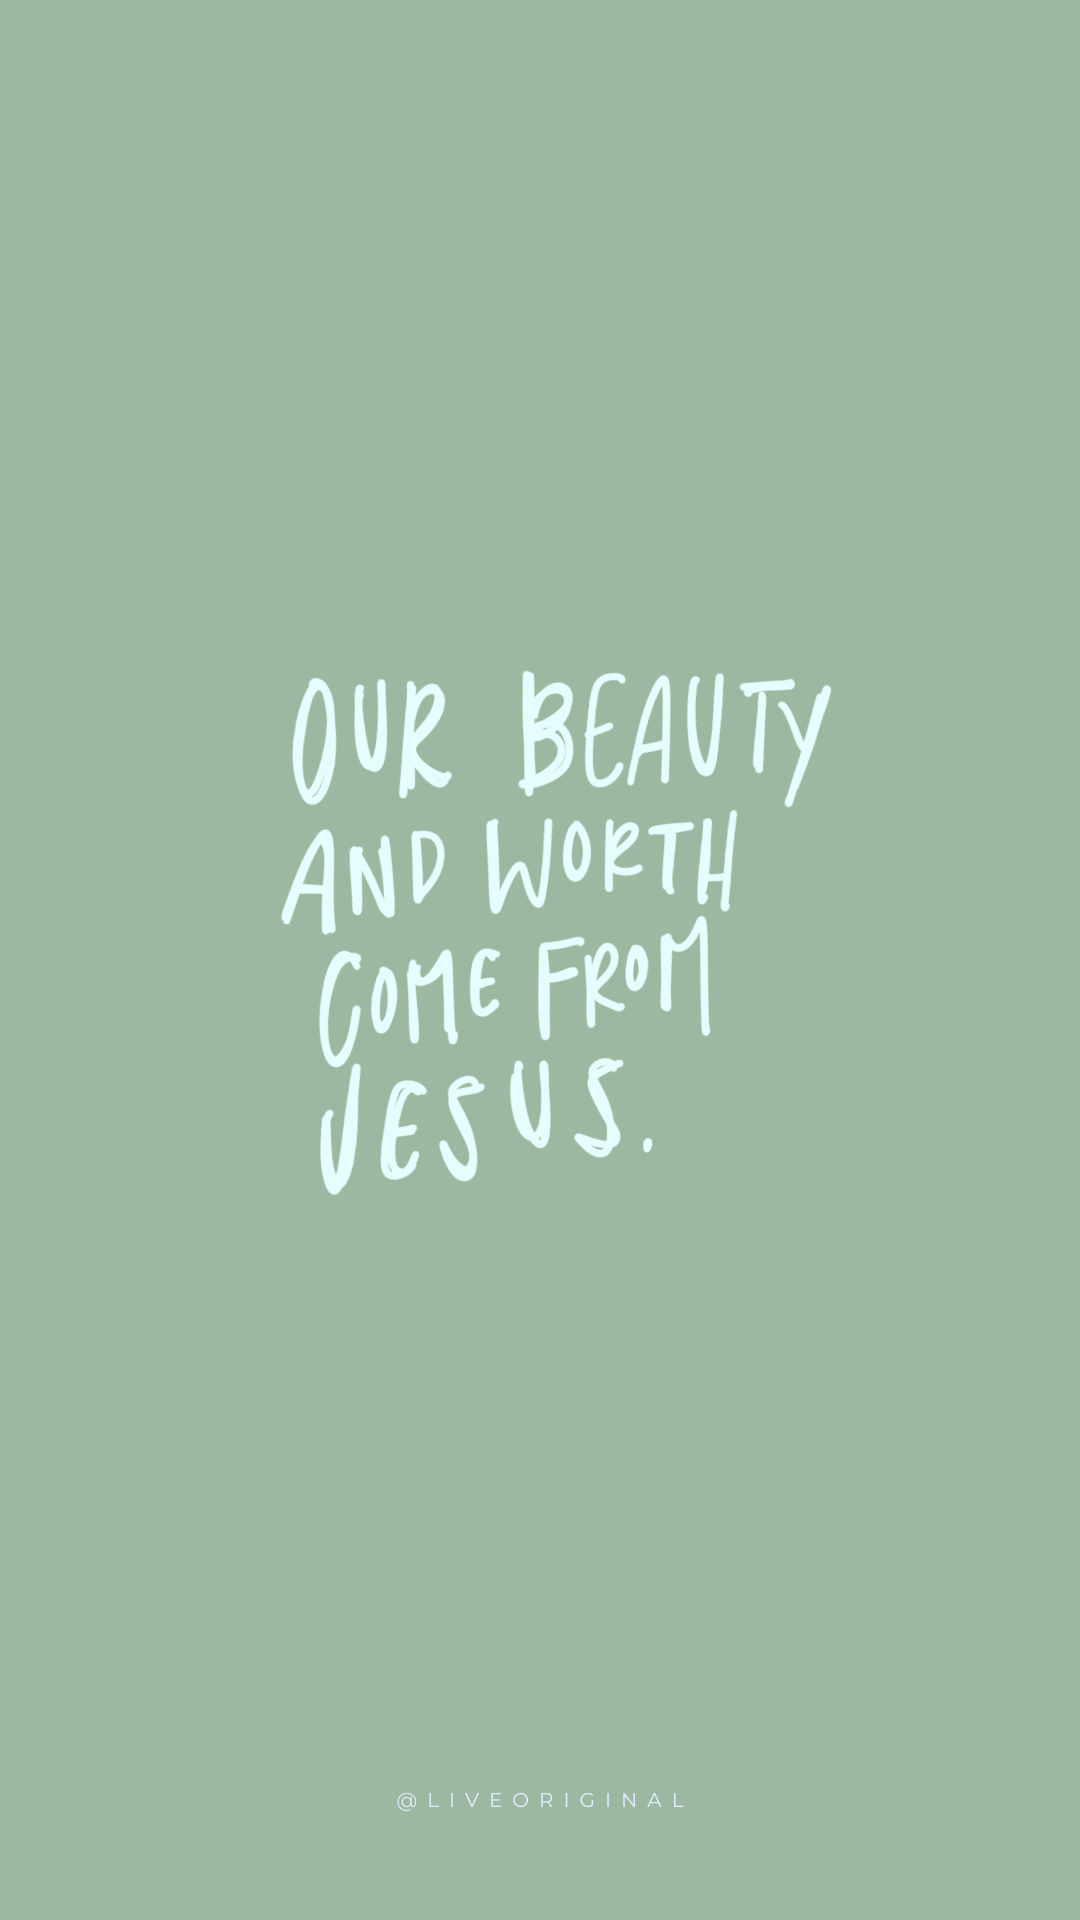 OUR BEAUTY
AND WORTH
COME FROM
JESUS.
@LIVEORIGINAL